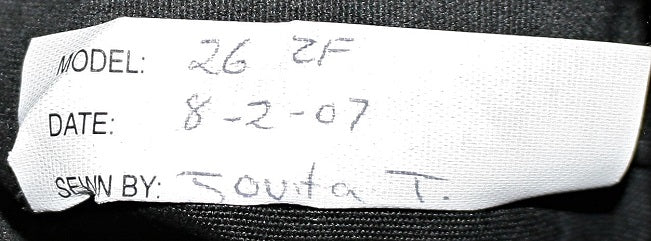 MODEL: 26 ZF
DATE: 8-2-07
SEWN BY: Jovita T.